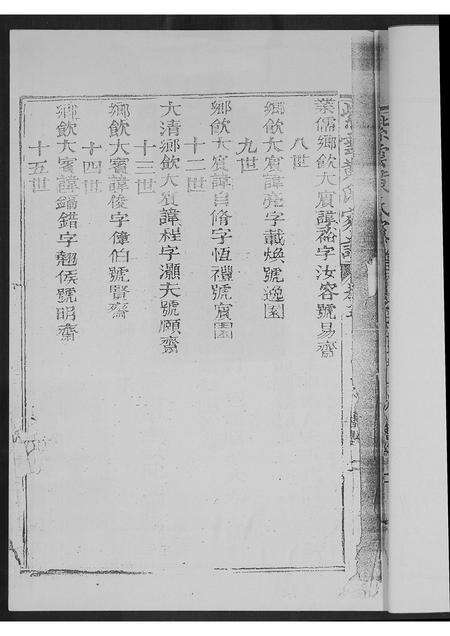 業儒鄉飲大賓諱裕字汝容號易齋
八世
鄉飲大賓諱堯字載煥號逸園
九世
鄉飲大賓諱自脩字恆禮號賓園
十二世
大清鄉飲大賓諱桯字灝夫號願齋
十三世
鄉飲大賓諱俊字偉伯號賢齋
十四世
鄉飲大賓諱鏑錯字翹侯號明齋
十五世